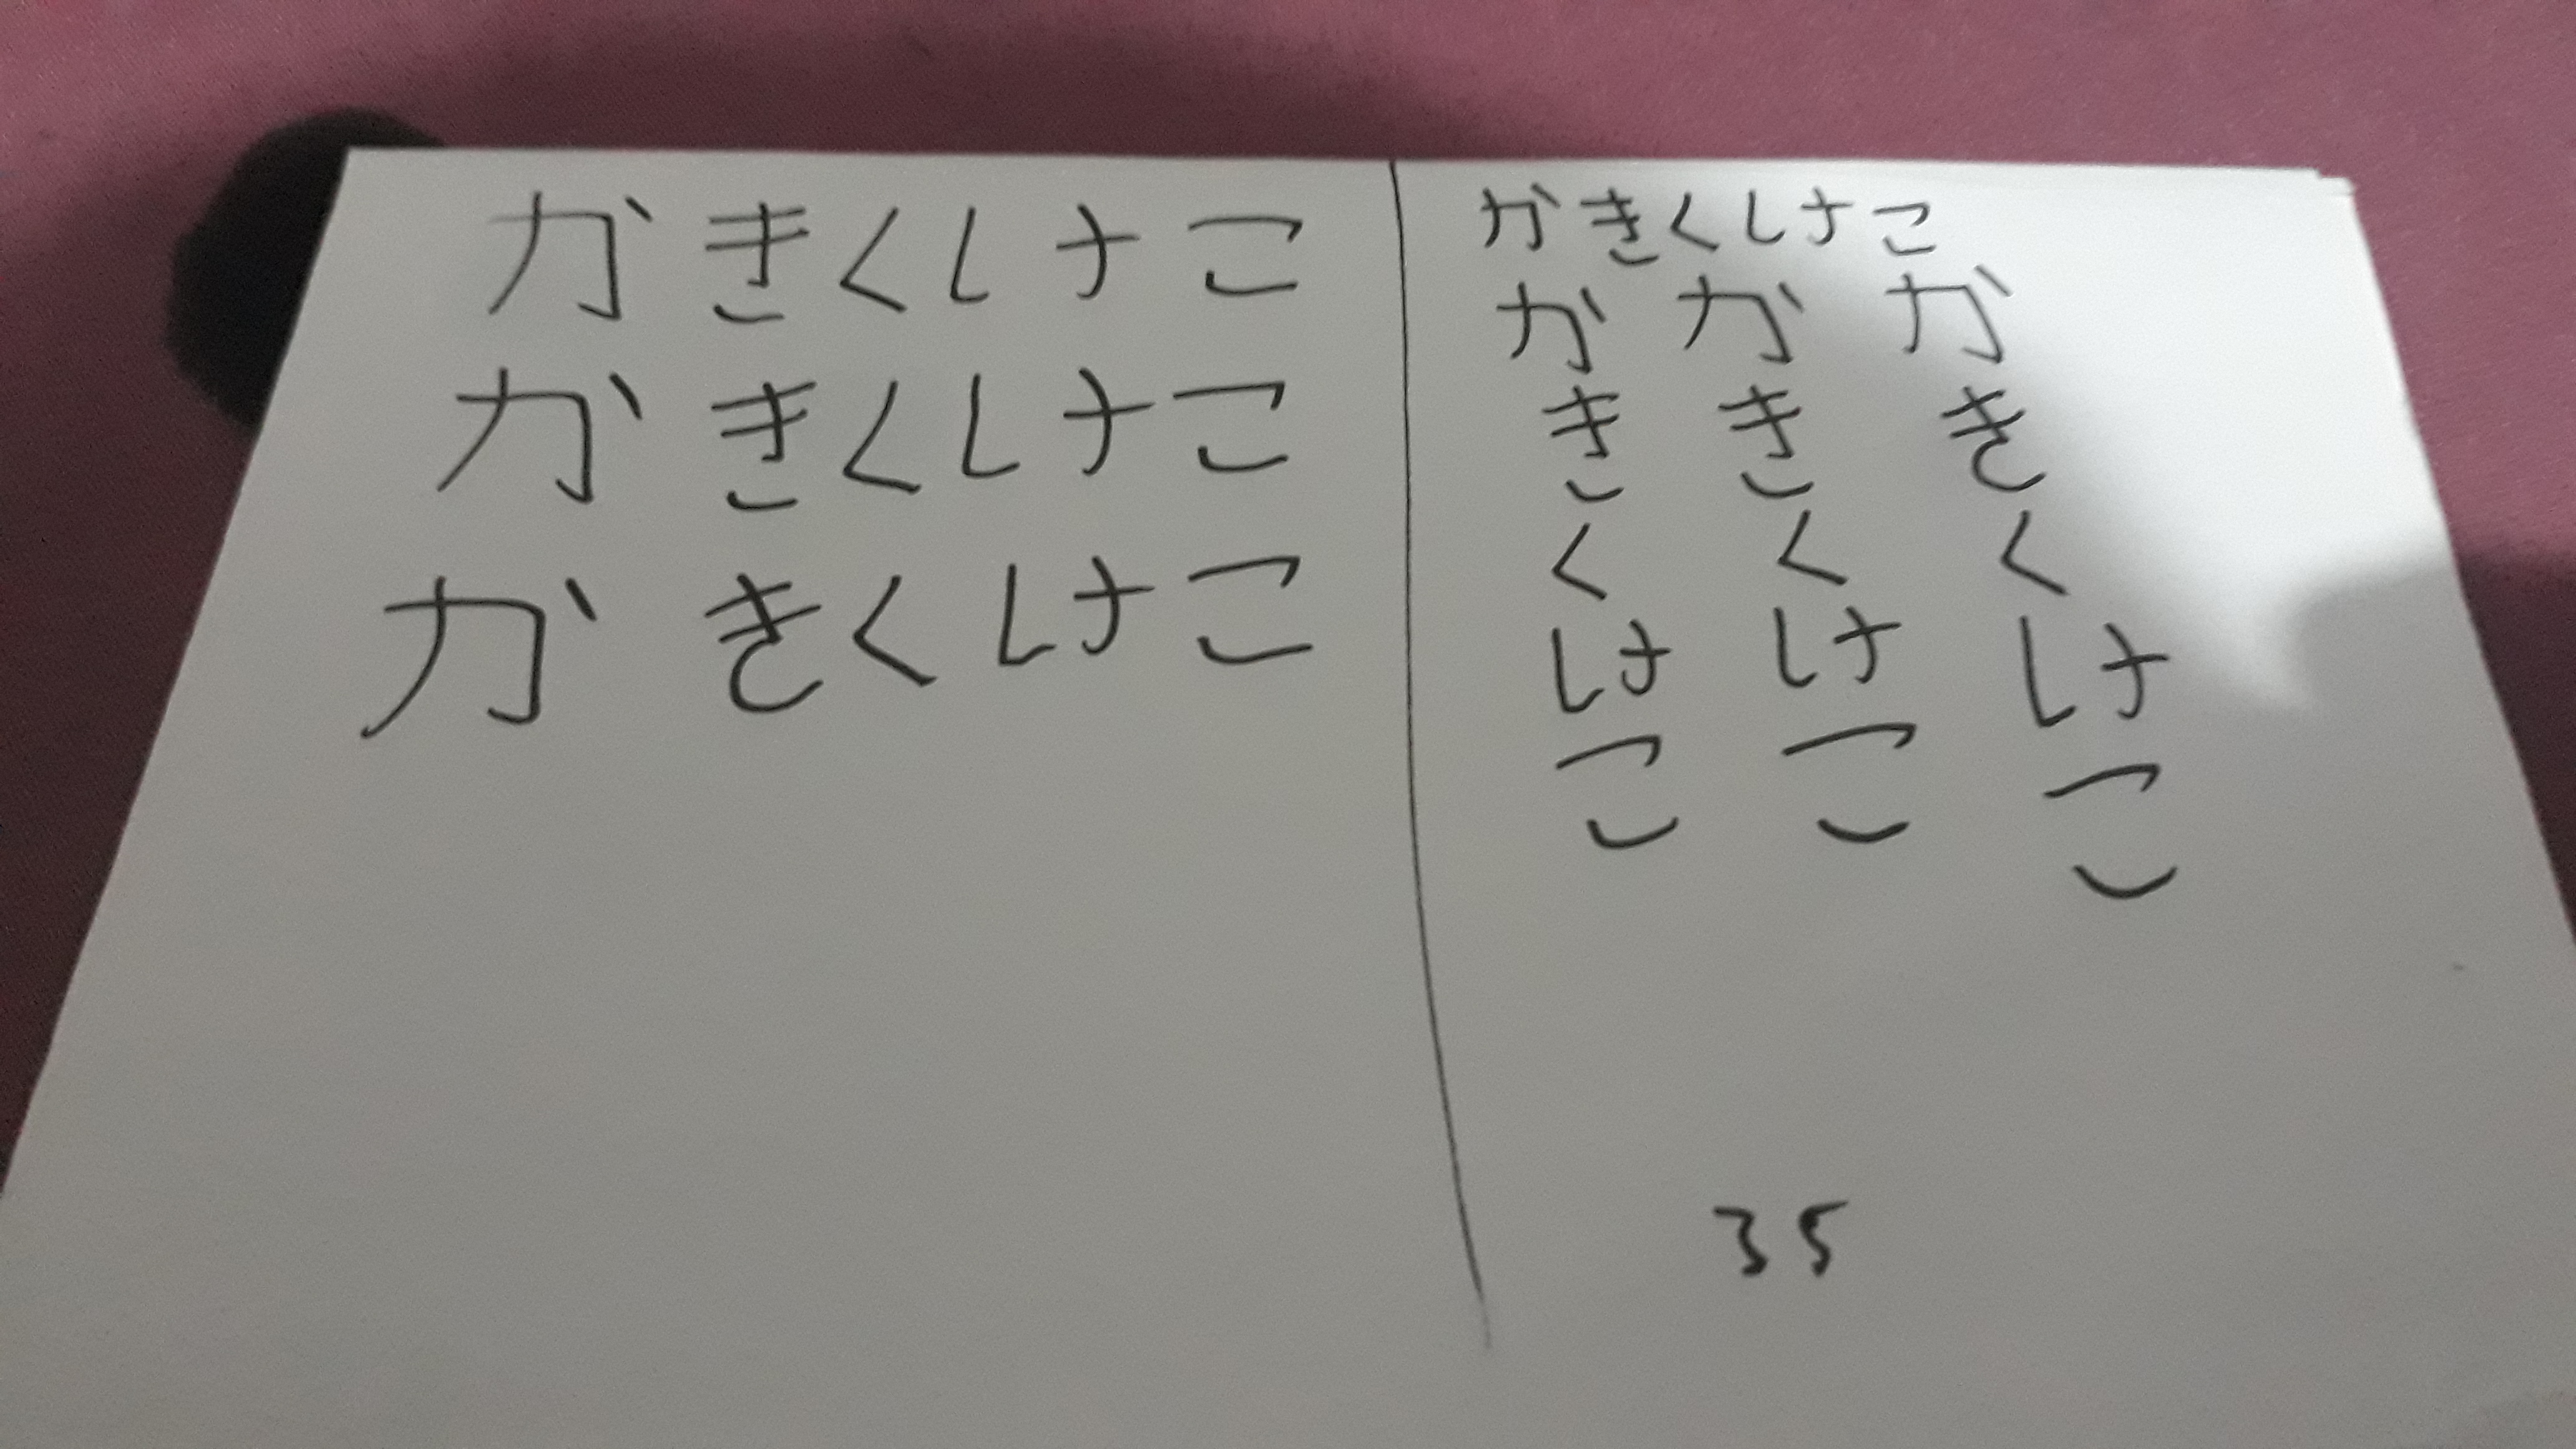 かきくけこ
かきくけこ
かきくけこ
かきくけこ
かかか
ききき
くくく
けけけ
こここ
35